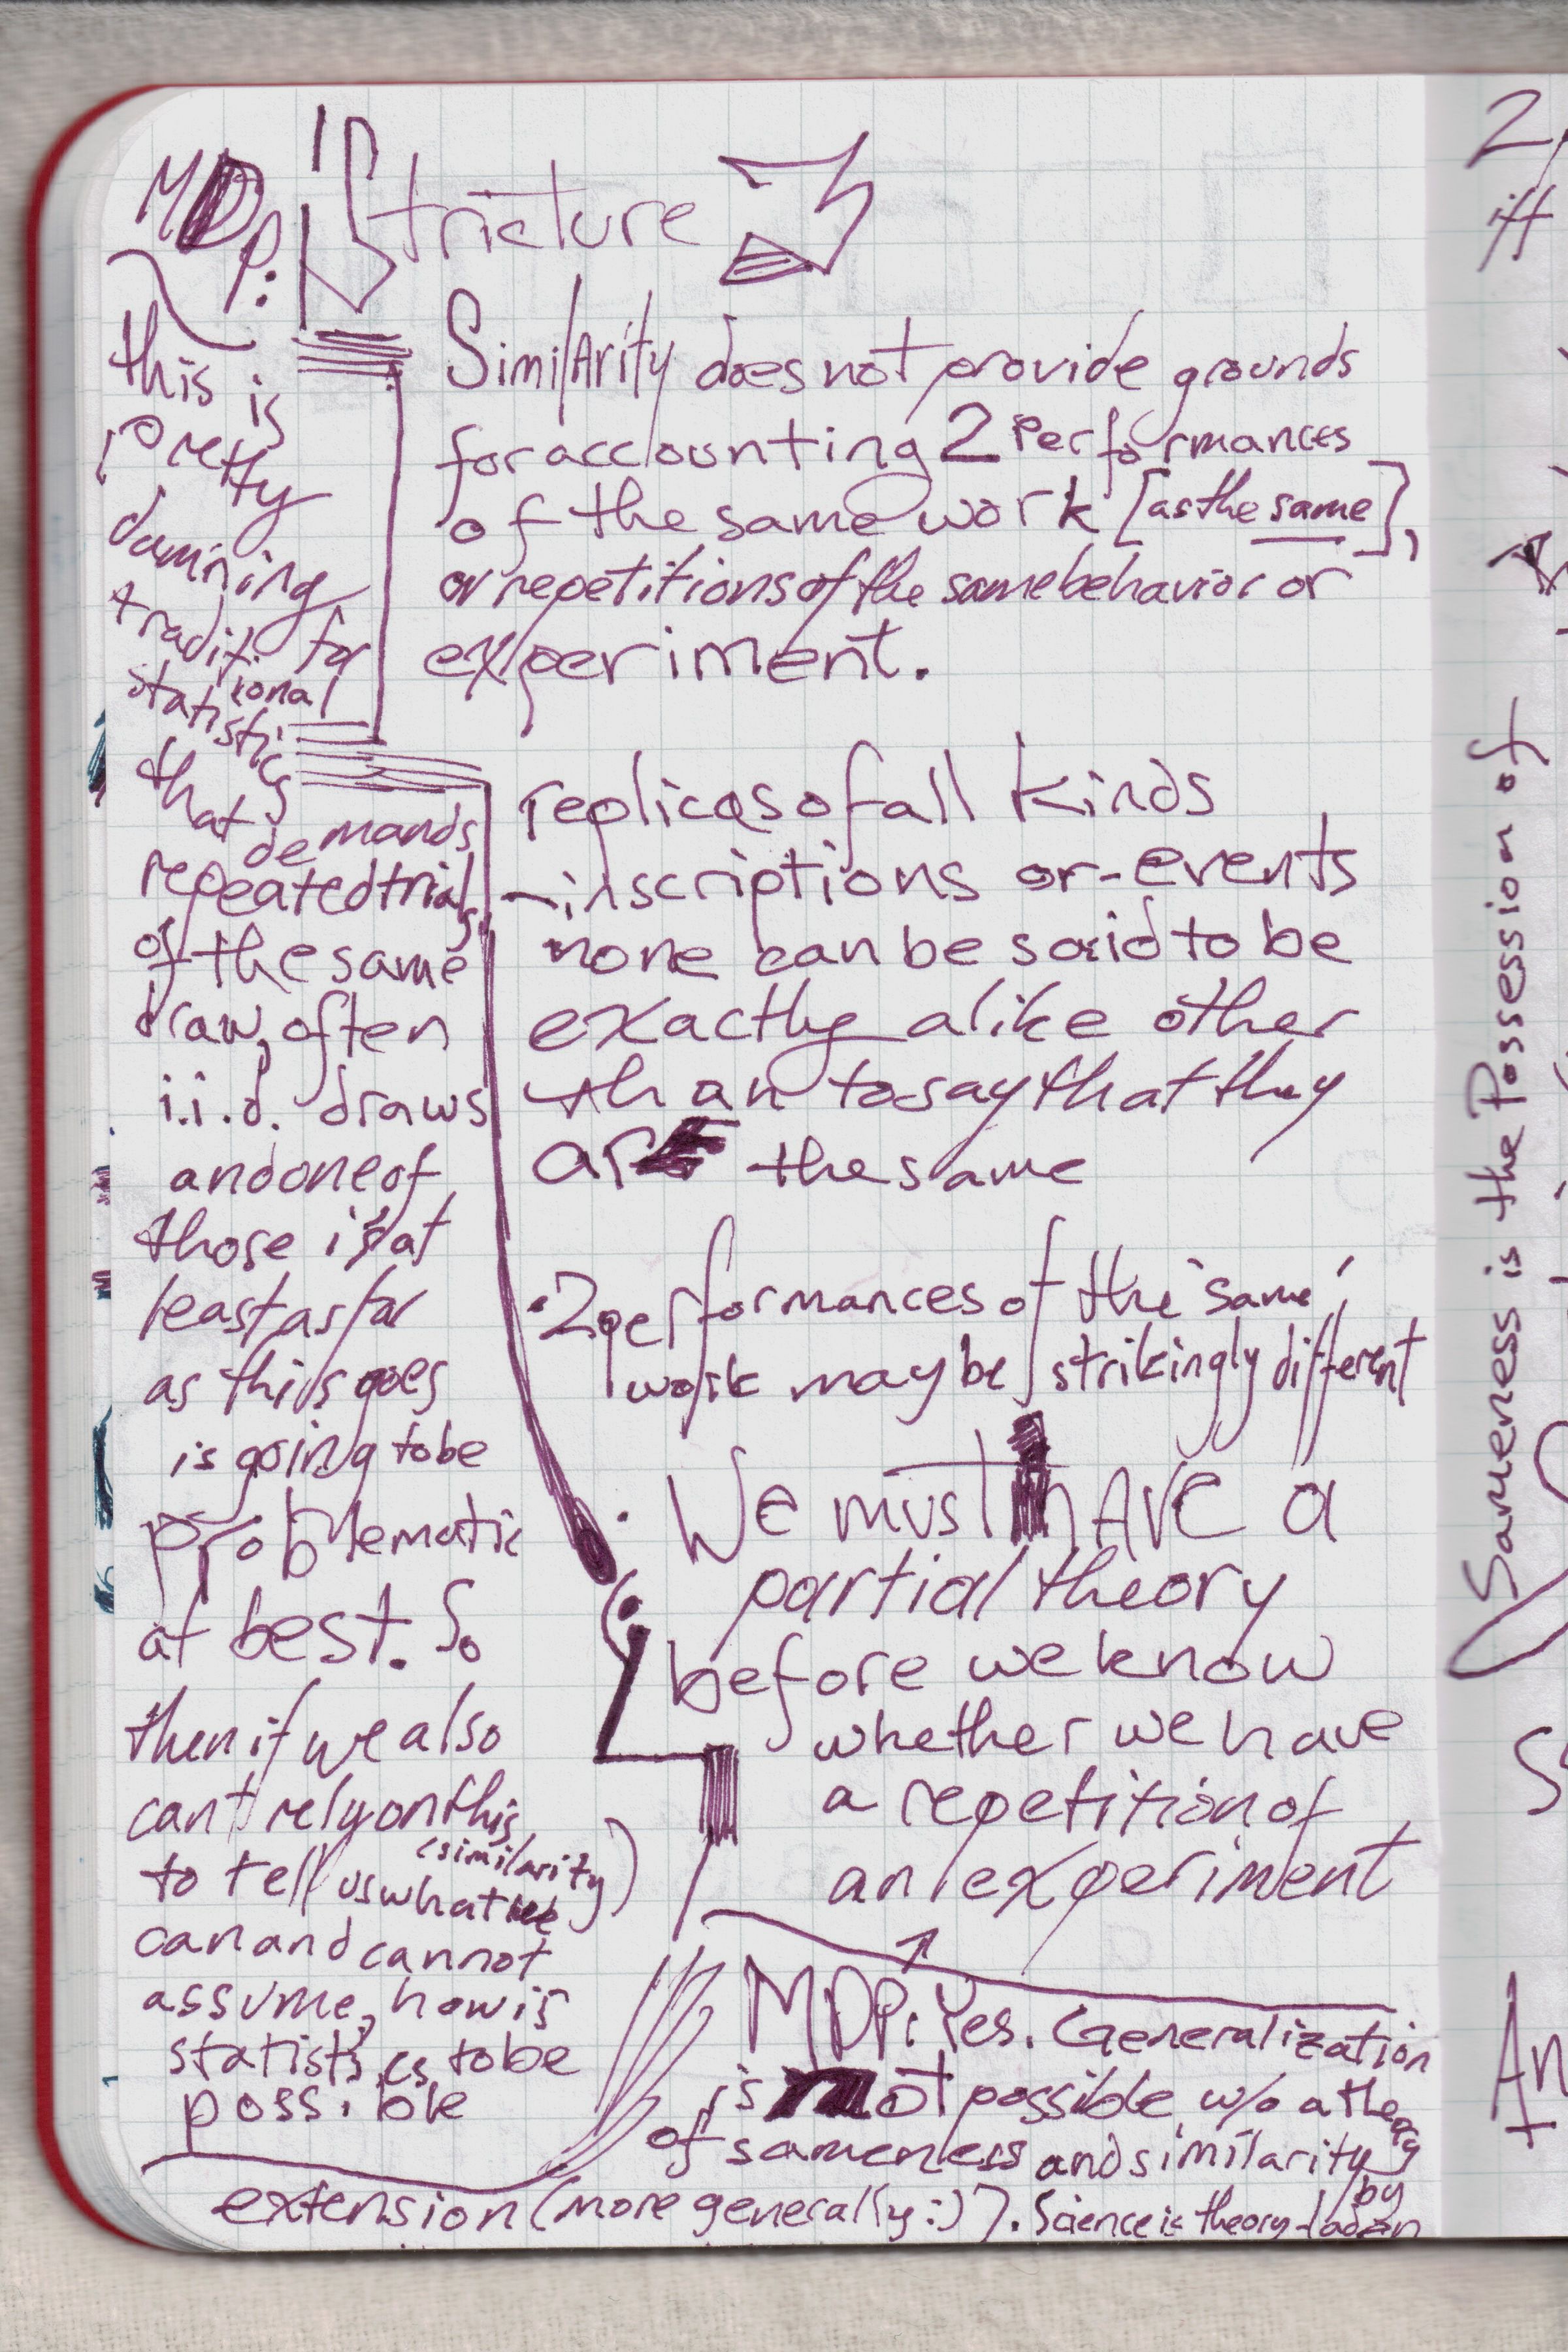 Stricture 3
Similarity does not provide grounds
for accounting 2 performances
of the same work [as the same],
or repetitions of the same behavior or
experiment.
replicas of all kinds
-inscriptions or-events
none can be said to be
exactly alike other
than to say that they
are the same
• 2 performances of the 'same'
work may be strikingly different
• We must have a
partial theory
before we know
whether we have
a repetition of
an experiment
MDP:
this is
pretty
damning
for
traditional
statistics
that demands
repeated trials
of the same
draw, often
i.i.d. draws
and one of
those is at
least as far
as this goes
is going to be
problematic
at best. So
then if we also
can't rely on this
(similarity)
to tell us what we
can and cannot
assume, how is
statistics to be
possible
MDP: Yes. Generalization
is not possible w/o a theory
of sameness and similarity by
extension (more generally :) ). Science is theory-laden
Sameness is the Possession of
2,
if
An